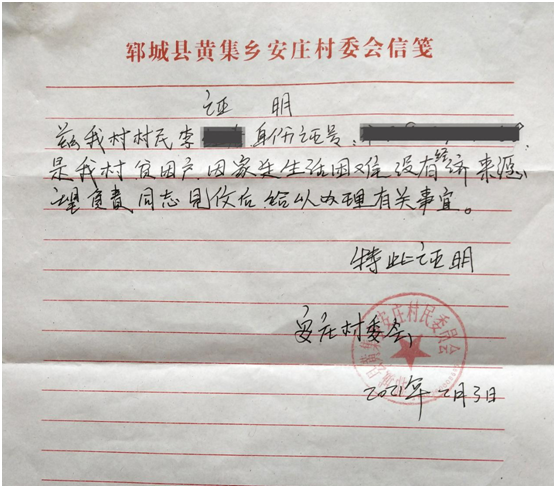 郓城县黄集乡安庄村委会信笺
证 明
兹我村村民李 身份证号:
是我村贫困户因家庭生活困难没有经济来源,
望负责同志见伩后给以办理有关事宜。
特此证明
安庄村委会
2021年2月3日
安庄村民委员会